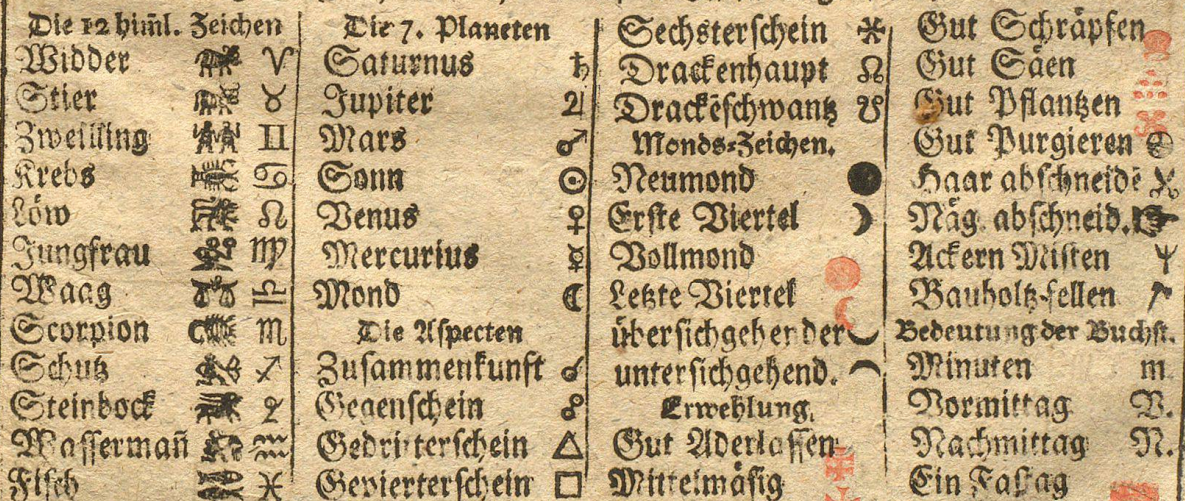 Die 12 him̃l. Zeichen
Widder ♈
Stier ♉
Zweilling ♊
Krebs ♋
Löw ♌
Jungfrau ♍
Waag ♎
Scorpion ♏
Schütz ♐
Steinbock ♑
Wassermañ ♒
Fisch ♓
Die 7. Planeten
Saturnus ♄
Jupiter ♃
Mars ♂
Sonn ☉
Venus ♀
Mercurius ☿
Mond ☾
Die Aspecten
Zusammenkunft ☌
Gegenschein ☍
Gedritterschein △
Gevierterschein □
Sechsterschein ⚹
Drackenhaupt ☊
Drackēschwantz ☋
Monds-Zeichen.
Neumond ●
Erste Viertel ☽
Vollmond
Letzte Viertel
übersichgehender
untersichgehend.
Erwehlung.
Gut Aderlassen
Mittelmäsig
Gut Schräpfen
Gut Säen
Gut Pflantzen
Gut Purgieren
Haar abschneidē
Näg. abschneid.
Ackern Misten
Bauholtz-fellen
Bedeutung der Buchst.
Minuten m.
Vormittag V.
Nachmittag N.
Ein Fastag